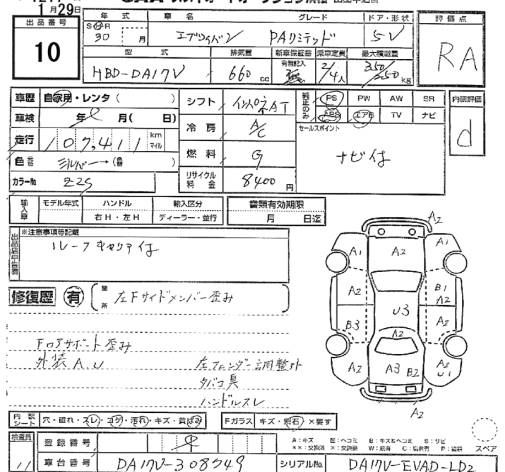 月29日
出品番号
10
年式 車名 グレード ドア・形状
30 エブリイバン PAリミテッド 5-V
型式 排気量 新車保証書 乗車定員 最大積載量
HBD-DA17V 660cc 有無記入 無 2/4人 350/250kg
評価点
RA
車歴 自家用・レンタ( )
シフト インパネAT
純正のみ PS PW AW SR
ABS エアB TV ナビ
内装評価
d
車検 年 月( 日)
冷房 A/C
セールスポイント
ナビ付
走行 107,411 km マイル
燃料 G
色 シルバー→( )
カラーNo Z2S
リサイクル料金 8400円
輸入車 モデル年式 ハンドル 輸入区分
右H・左H ディーラー・並行
書類有効期限
月 日迄
※注意事項等記載
ルーフキャリア付
修復歴 有 箇所 左Fサイドメンバー歪み
Fロアサポート歪み
外装A,U 左フェンダー調整外
タバコ臭
ハンドルスレ
A2
A1 A2 A1
A2 B1 A2
U3
B3 A2 A2
A2 A3 B2 A2 U1
A2
内装シート 穴・破れ・スレ・コゲ・汚れ・キズ・臭
Fガラス キズ・飛石・×要す
検査員 11
登録番号
車台番号 DA17V-308749
シリアルNo DA17V-EVAD-LD2
A:キズ U:凹ミ B:キズ&凹ミ S:サビ
スペア